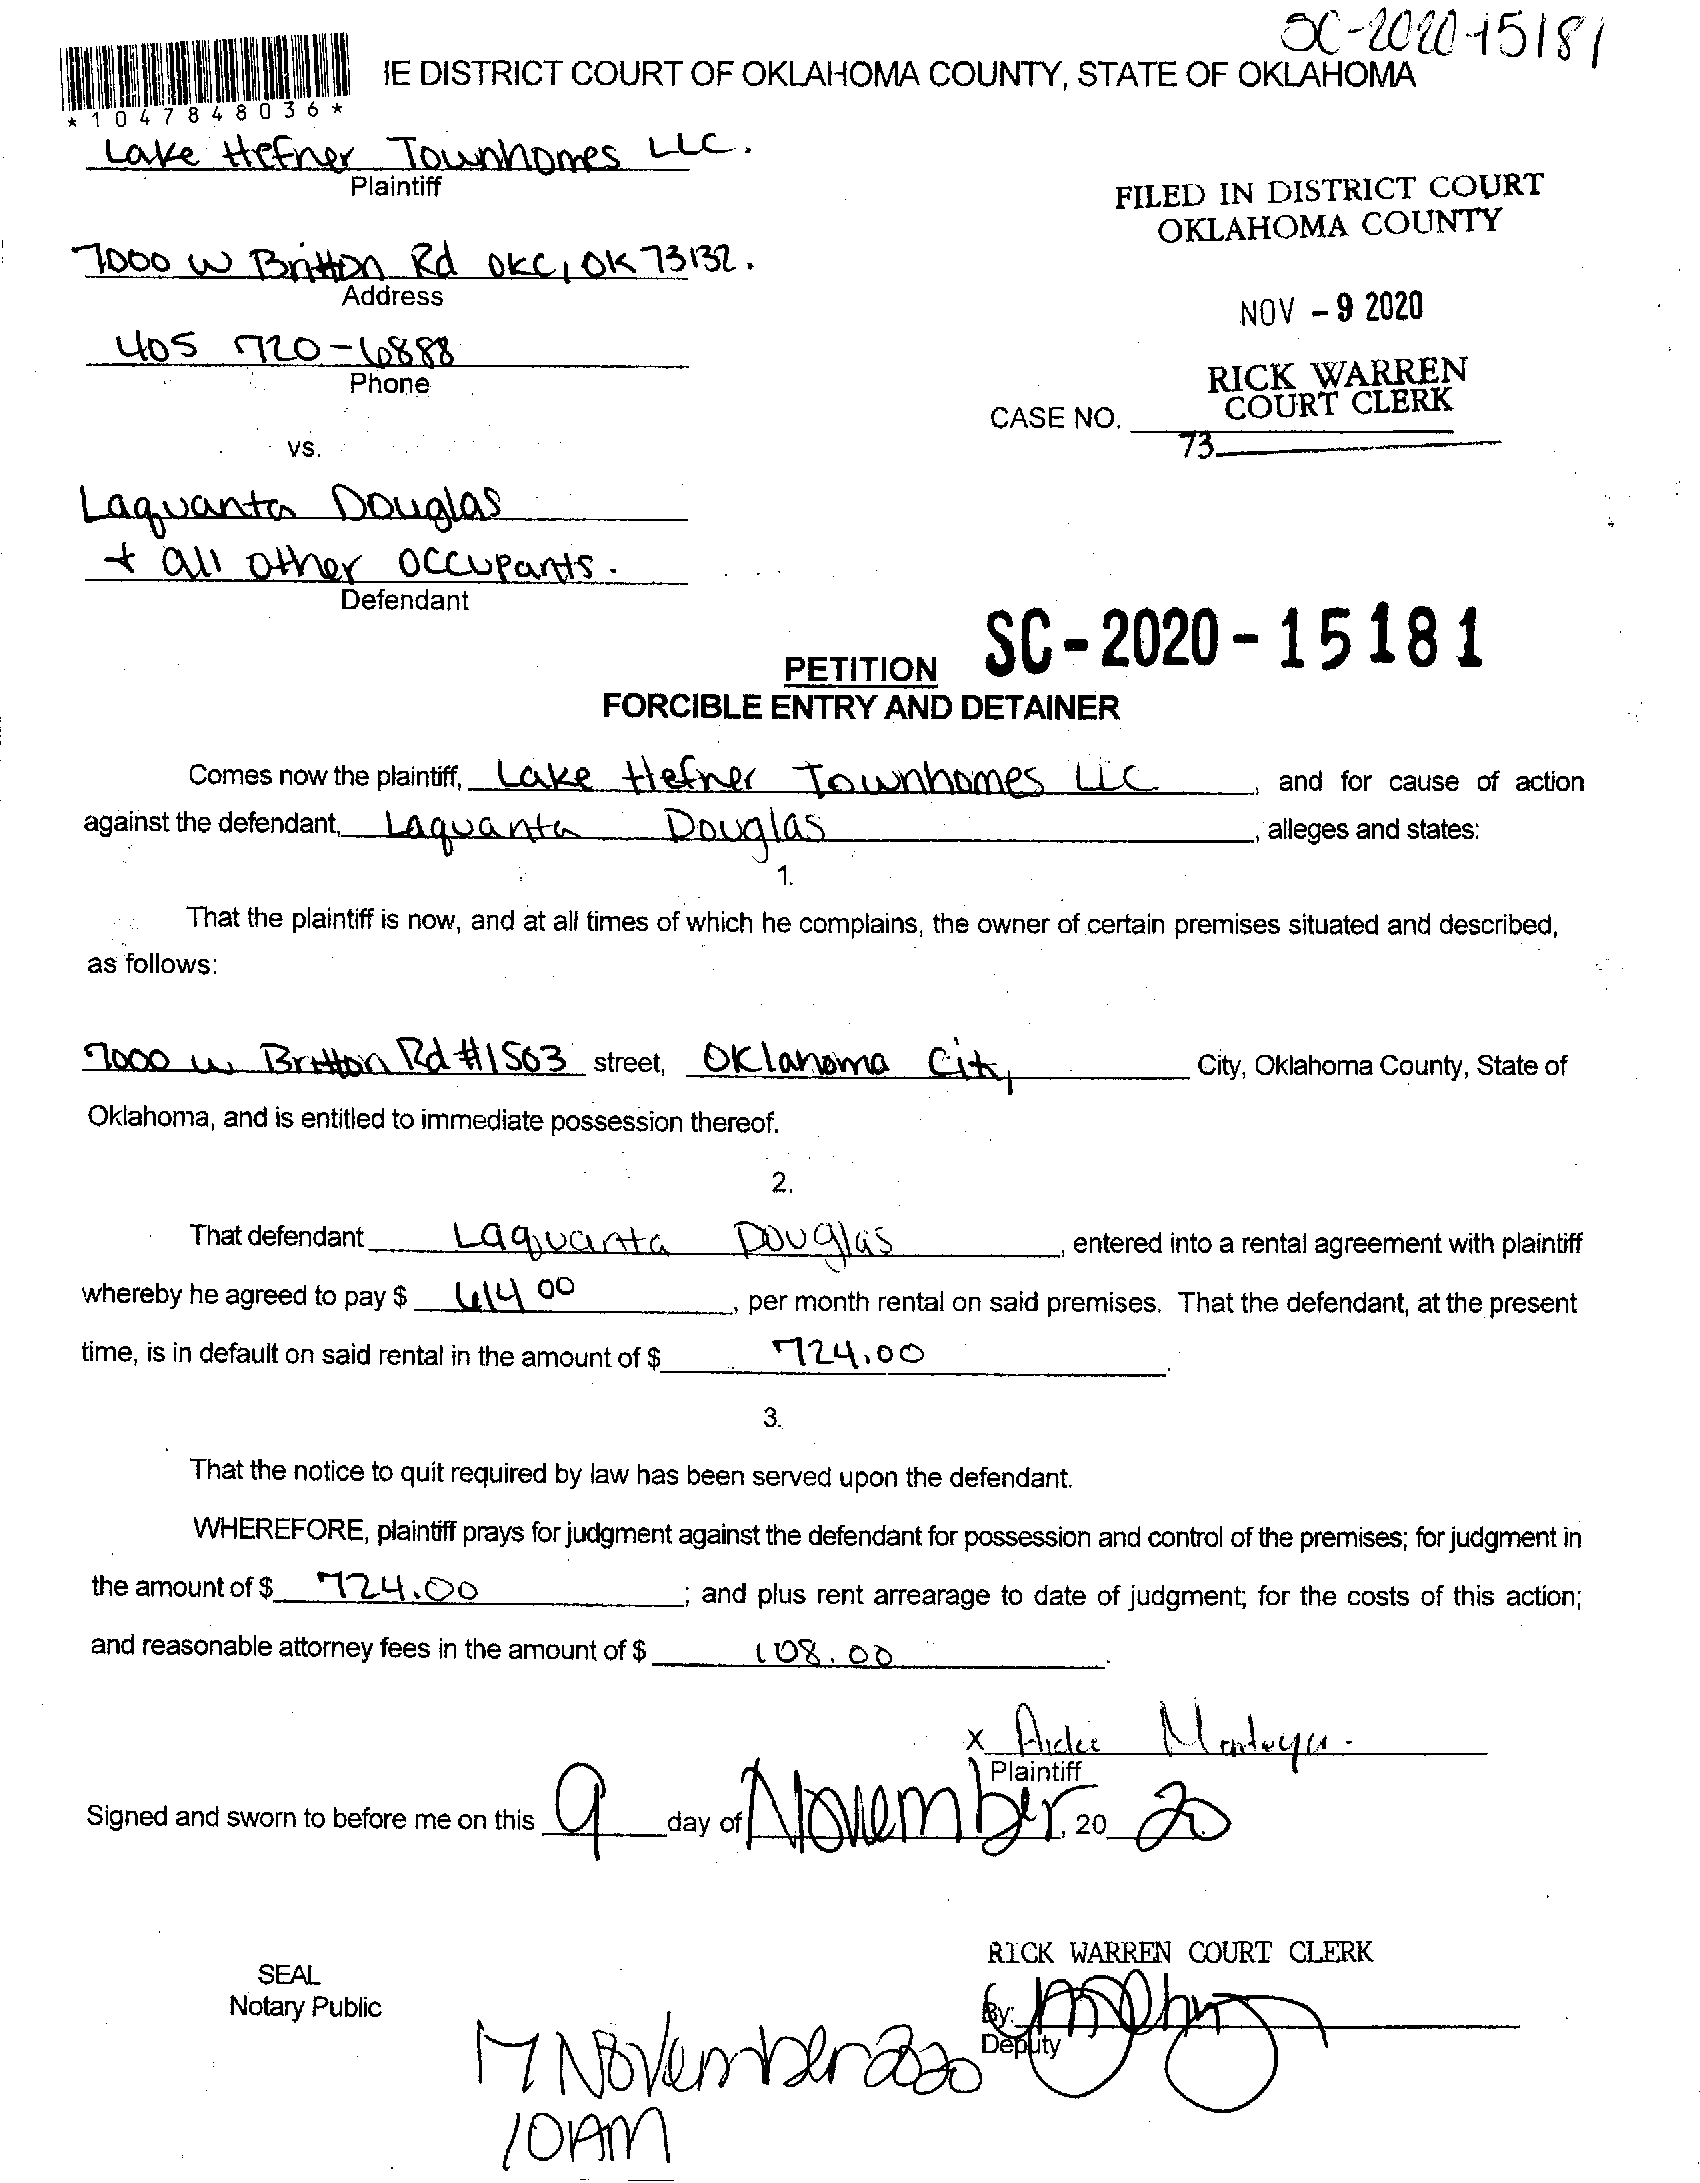 SC-2020-15181
IE DISTRICT COURT OF OKLAHOMA COUNTY, STATE OF OKLAHOMA
*1047848036*
Lake Hefner Townhomes LLC.
Plaintiff
FILED IN DISTRICT COURT
OKLAHOMA COUNTY
7000 W Britton Rd OKC, OK 73132.
Address
NOV - 9 2020
405 720-6888
Phone
RICK WARREN
COURT CLERK
CASE NO.
73
vs.
Laquanta Douglas
+ all other occupants.
Defendant
SC-2020-15181
PETITION
FORCIBLE ENTRY AND DETAINER
Comes now the plaintiff, Lake Hefner Townhomes LLC, and for cause of action
against the defendant, Laquanta Douglas, alleges and states:
1.
That the plaintiff is now, and at all times of which he complains, the owner of certain premises situated and described,
as follows:
7000 W Britton Rd #1503 street, Oklahoma City City, Oklahoma County, State of
Oklahoma, and is entitled to immediate possession thereof.
2.
That defendant Laquanta Douglas, entered into a rental agreement with plaintiff
whereby he agreed to pay $ 614 00, per month rental on said premises. That the defendant, at the present
time, is in default on said rental in the amount of $ 724.00.
3.
That the notice to quit required by law has been served upon the defendant.
WHEREFORE, plaintiff prays for judgment against the defendant for possession and control of the premises; for judgment in
the amount of $ 724.00; and plus rent arrearage to date of judgment; for the costs of this action;
and reasonable attorney fees in the amount of $ 108.00.
X
Plaintiff
Signed and sworn to before me on this 9 day of November, 20 20
RICK WARREN COURT CLERK
SEAL
Notary Public
By:
Deputy
17 November 2020
10AM